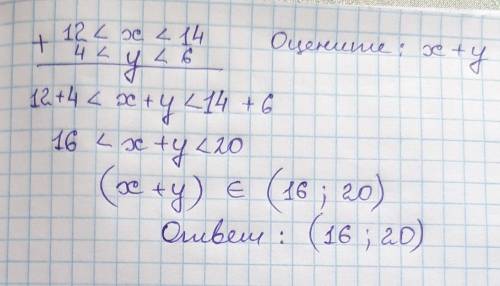 12 < x < 14 Оцените: x+y
+ 4 < y < 6
12+4 < x+y < 14 + 6
16 < x+y < 20
(x+y) ∈ (16 ; 20)
Ответ: (16 ; 20)